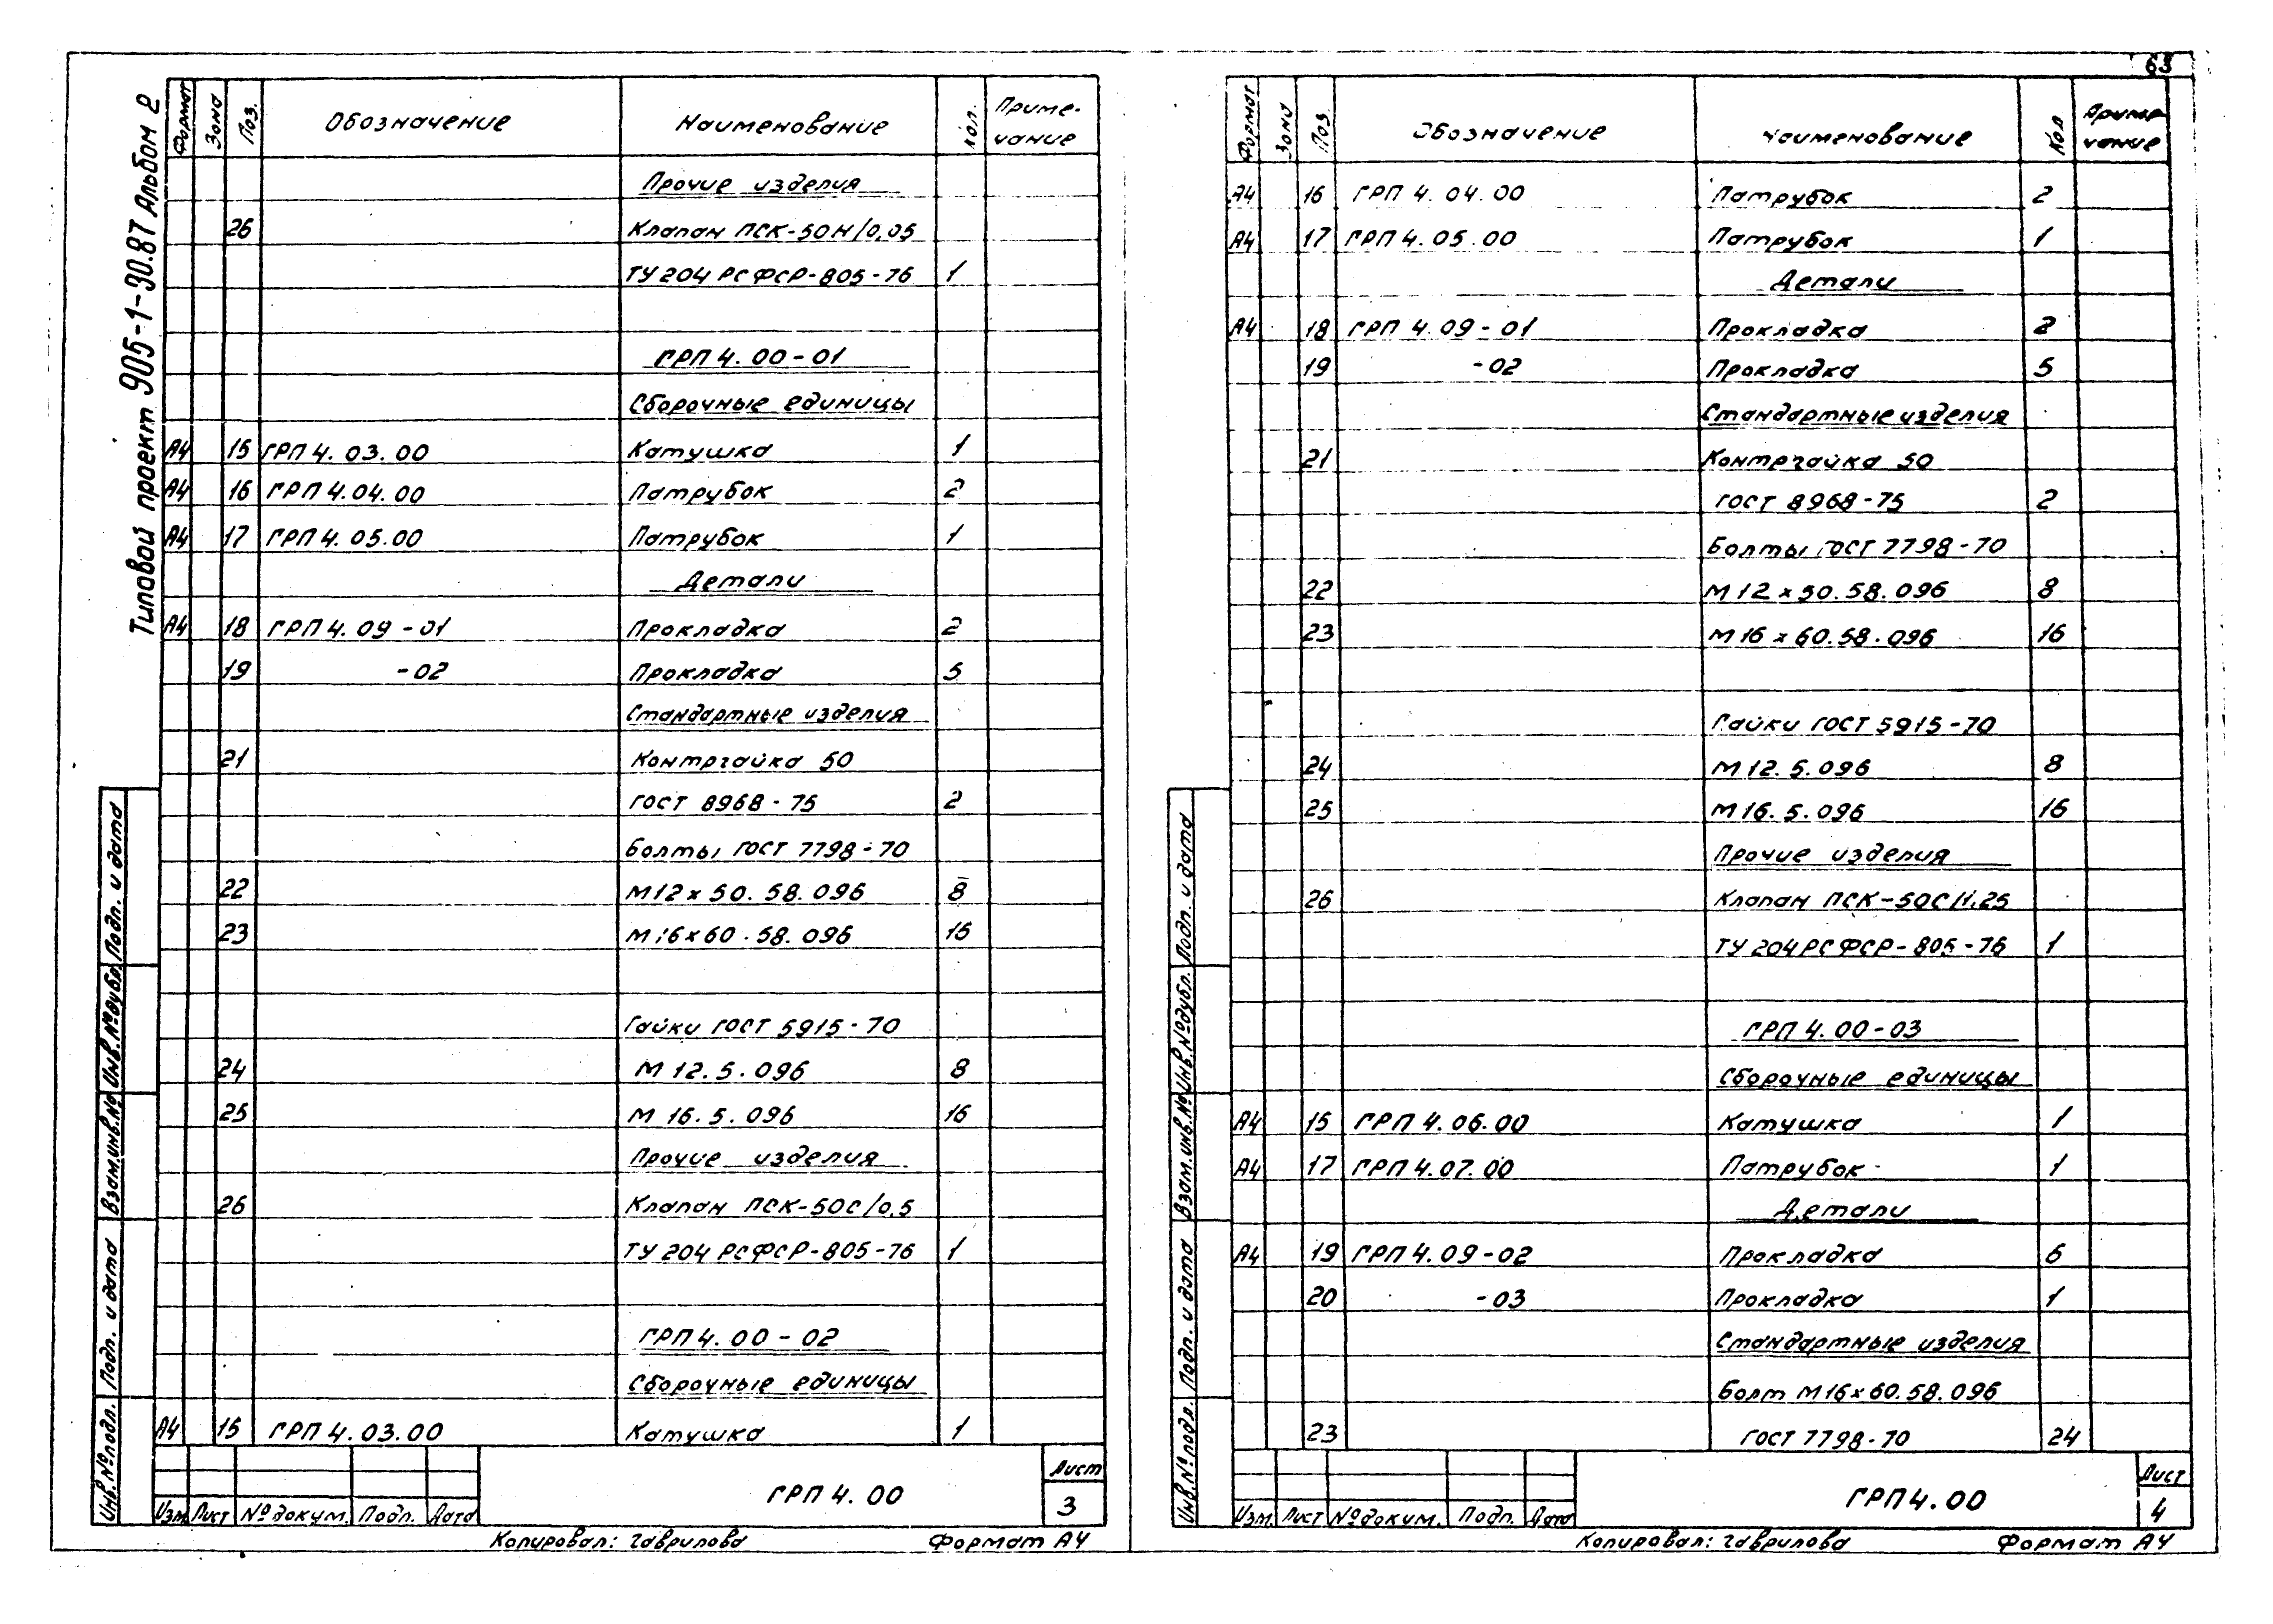 63
Типовой проект 905-1-90.87 Альбом 2
Формат Зона Поз. Обозначение Наименование Кол. Приме-
чание
Прочие изделия
26 Клапан ПСК-50Н/0,05
ТУ 204 РСФСР-805-76 1
ГРП 4.00-01
Сборочные единицы
А4 15 ГРП 4.03.00 Катушка 1
А4 16 ГРП 4.04.00 Патрубок 2
А4 17 ГРП 4.05.00 Патрубок 1
Детали
А4 18 ГРП 4.09-01 Прокладка 2
19 -02 Прокладка 5
Стандартные изделия
21 Контргайка 50
ГОСТ 8968-75 2
Болты ГОСТ 7798-70
22 М12х50.58.096 8
23 М16х60.58.096 16
Гайки ГОСТ 5915-70
24 М 12.5.096 8
25 М 16.5.096 16
Прочие изделия
26 Клапан ПСК-50С/0,5
ТУ 204 РСФСР-805-76 1
ГРП 4.00-02
Сборочные единицы
А4 15 ГРП 4.03.00 Катушка 1
Инв.№подл. Подп. и дата Взам.инв.№ Инв.№дубл. Подп. и дата
Изм. Лист № докум. Подп. Дата
ГРП 4.00
Лист
3
Копировал: Гаврилова Формат А4
Формат Зона Поз. Обозначение Наименование Кол Приме-
чание
А4 16 ГРП 4.04.00 Патрубок 2
А4 17 ГРП 4.05.00 Патрубок 1
Детали
А4 18 ГРП 4.09-01 Прокладка 2
19 -02 Прокладка 5
Стандартные изделия
21 Контргайка 50
ГОСТ 8968-75 2
Болты ГОСТ 7798-70
22 М12х50.58.096 8
23 М16х60.58.096 16
Гайки ГОСТ 5915-70
24 М 12.5.096 8
25 М 16.5.096 16
Прочие изделия
26 Клапан ПСК-50С/1,25
ТУ 204 РСФСР-805-76 1
ГРП 4.00-03
Сборочные единицы
А4 15 ГРП 4.06.00 Катушка 1
А4 17 ГРП 4.07.00 Патрубок 1
Детали
А4 19 ГРП 4.09-02 Прокладка 6
20 -03 Прокладка 1
Стандартные изделия
Болт М16х60.58.096
23 ГОСТ 7798-70 24
Инв.№подл. Подп. и дата Взам.инв.№ Инв.№дубл. Подп. и дата
Изм. Лист № докум. Подп. Дата
ГРП 4.00
Лист
4
Копировал: Гаврилова Формат А4